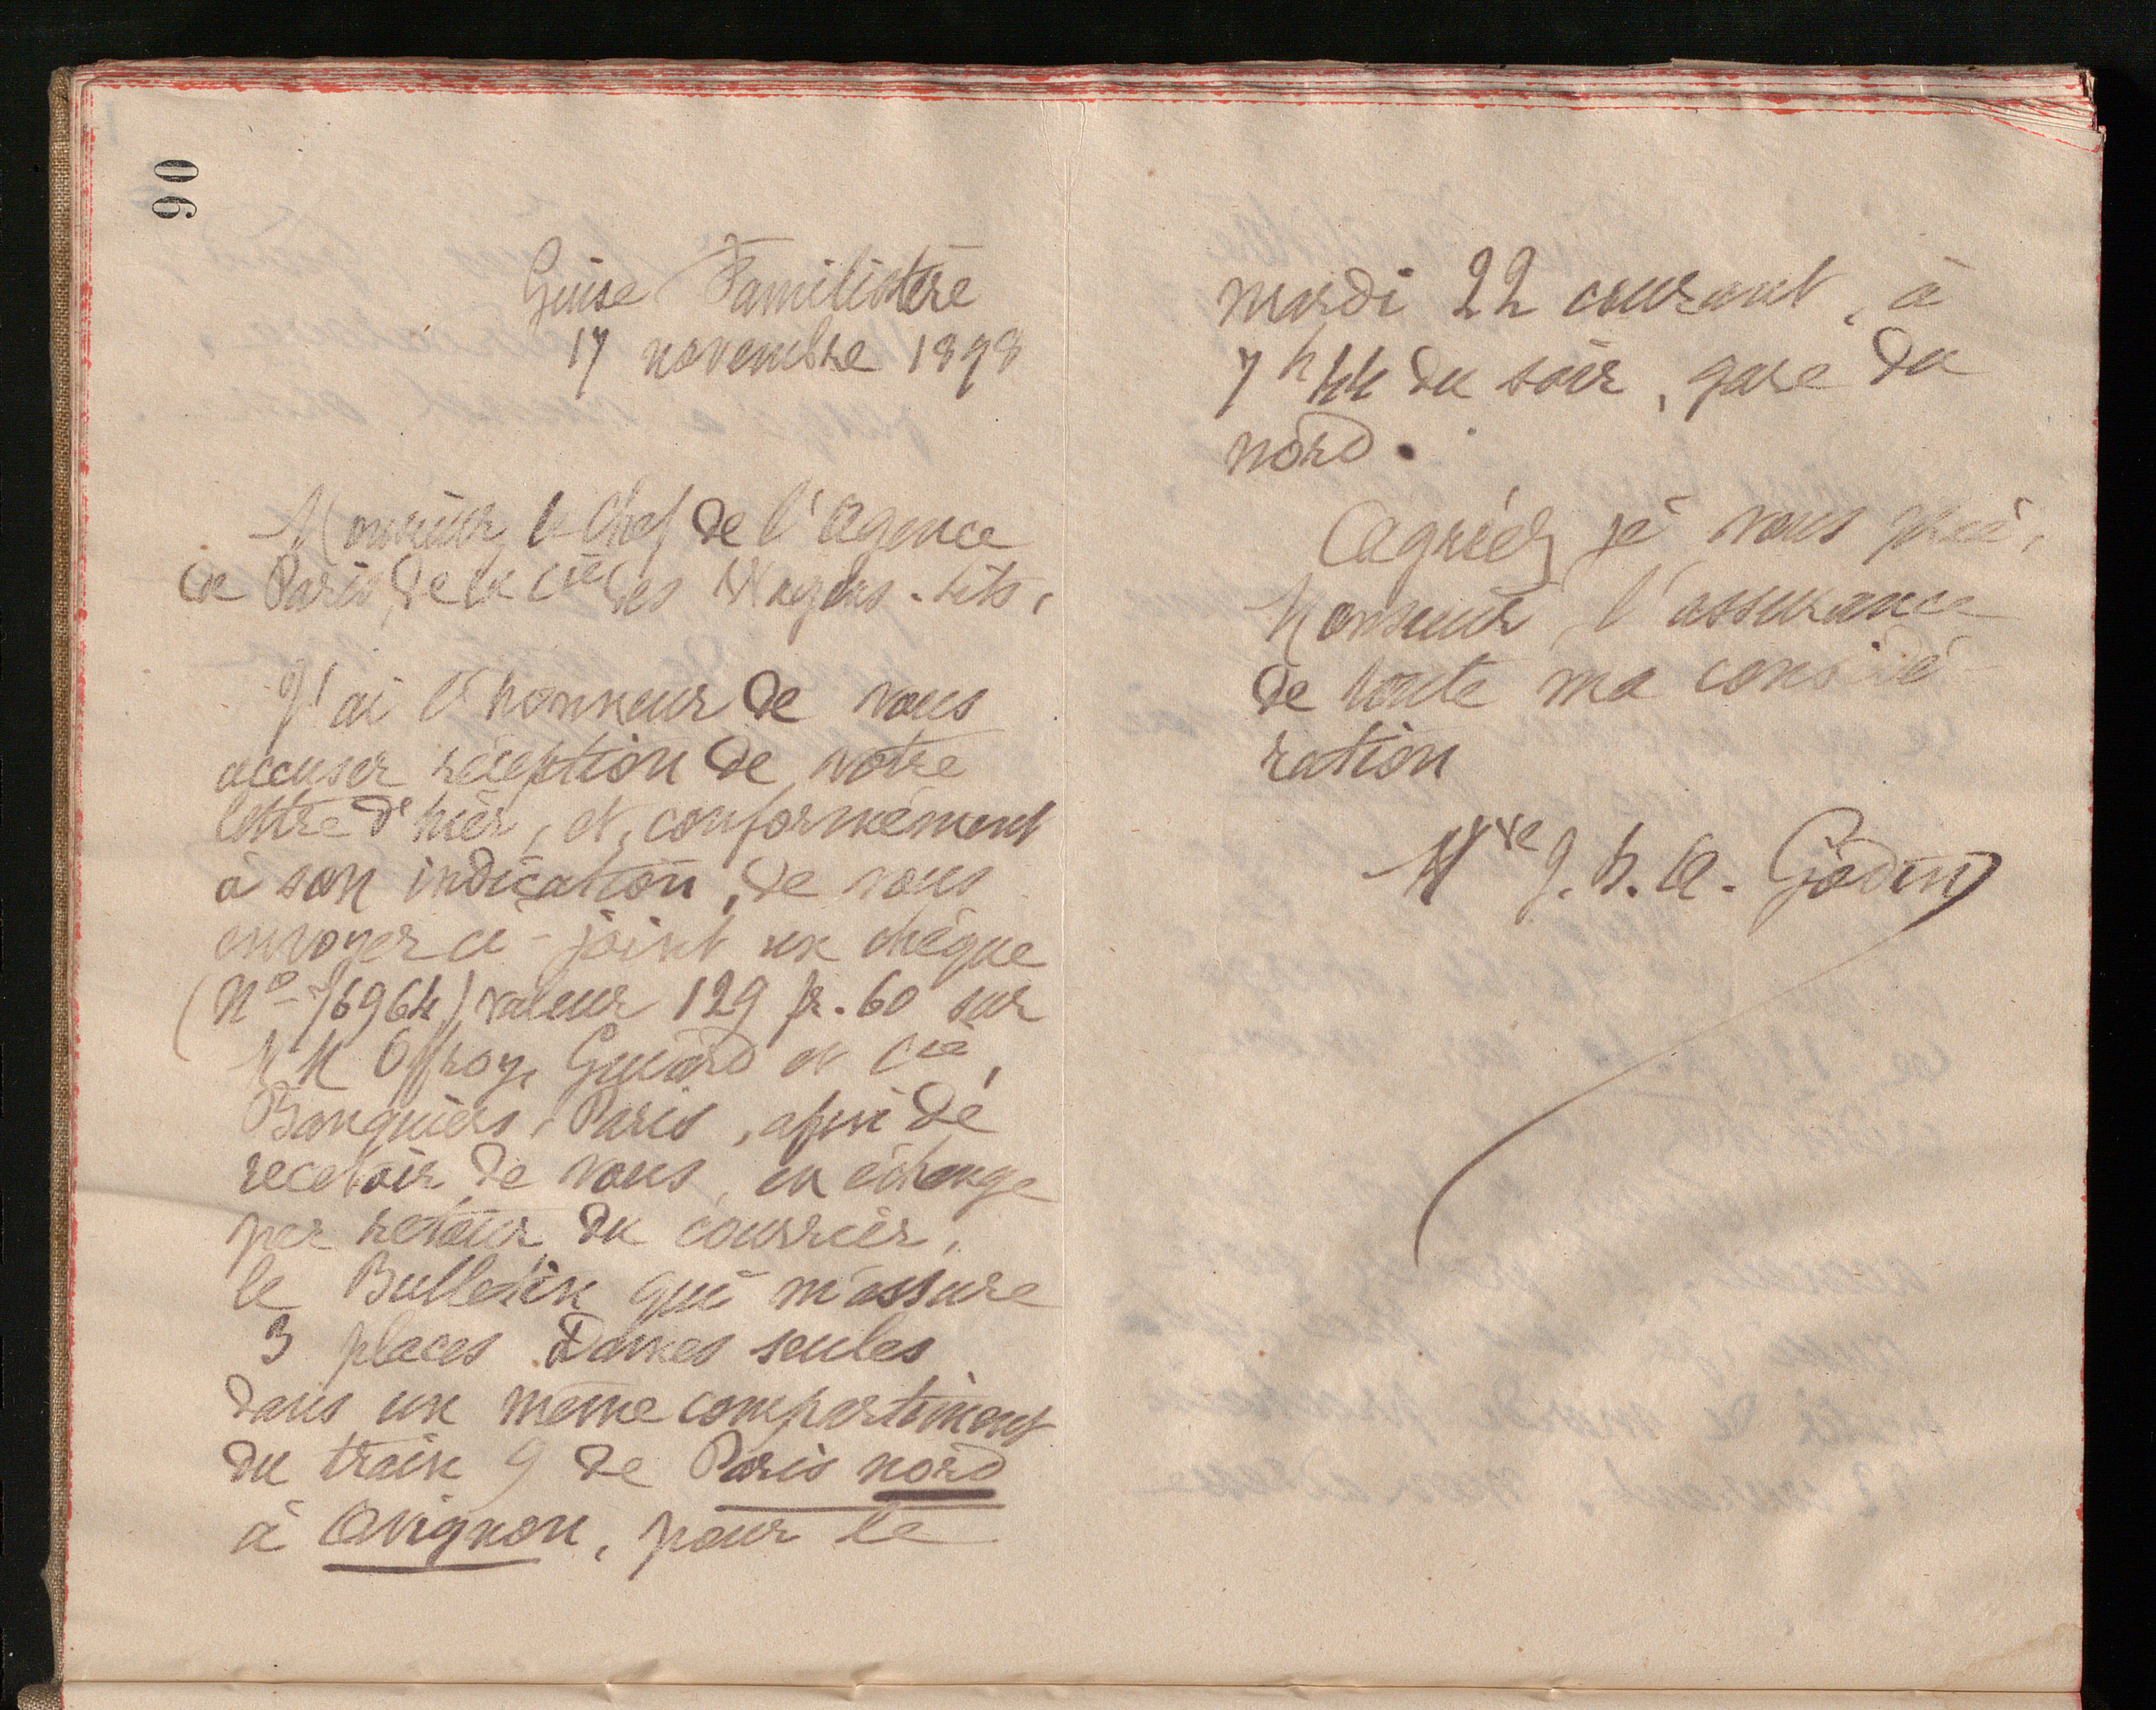 90
Guise Familistère
17 novembre 1898
Monsieur le Chef de l'Agence
de Paris, de la Cie des Wagons-lits,
J'ai l'honneur de vous
accuser réception de votre
lettre d'hier, et, conformément
à son indication, de vous
envoyer ci-joint un chèque
(No 76964) valeur 129 fr. 60 sur
MM Offroy, Guiard et Cie,
Banquiers, Paris, afin de
recevoir de vous, en échange
par retour du courrier,
le Bulletin qui m'assure
3 places Dames seules
dans un même compartiment
du train 9 de Paris nord
à Avignon, pour le
mardi 22 courant, à
7h 44 du soir, gare du
nord.
Agréez je vous prie,
Monsieur, l'assurance
de toute ma considé-
ration
Vve J. B. A. Godin